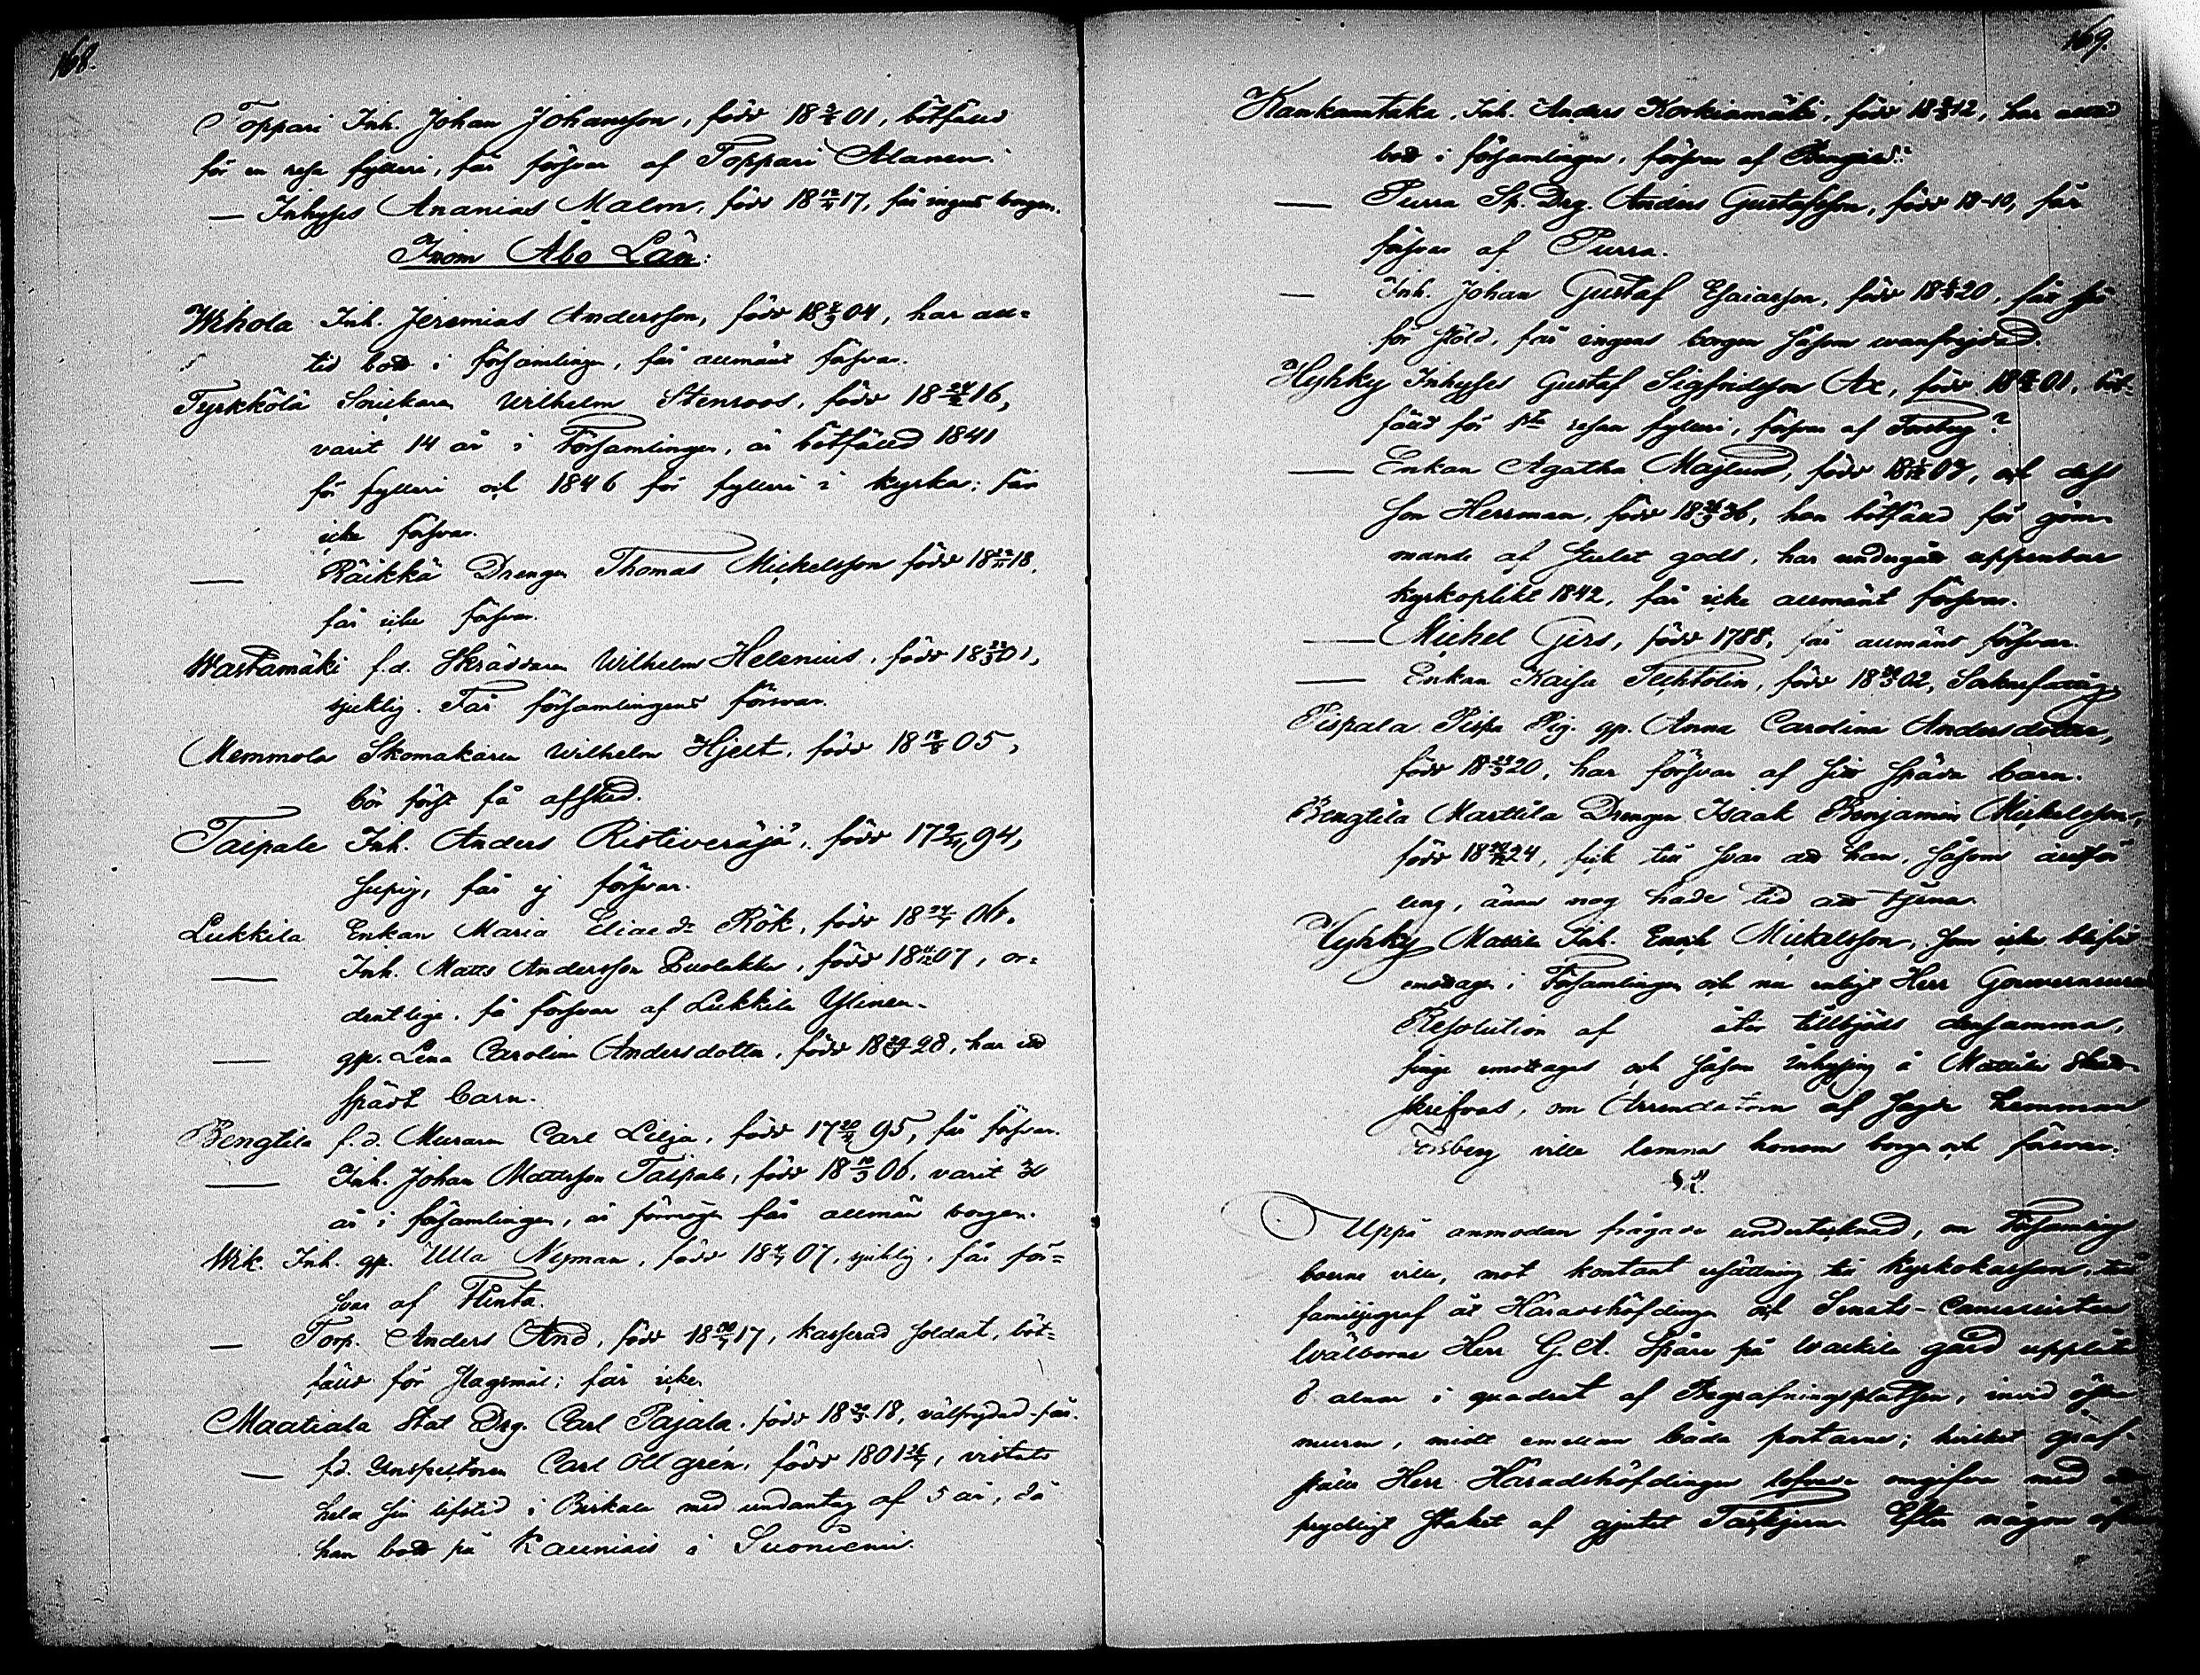 168.
Toppari Inh. Johan Johansson, född 18 2/2 01, bötfälld
för en resa fylleri, får försvar af Toppari Alanen.
— Inhyses Ananias Malm, född 18 17, får ingens borgen.
Inom Åbo Län:
Wihola Inh. Jeremias Andersson, född 18 04, har all=
tid bott i församlingen, får allmänt försvar.
Tyrkkölä Snickaren Wilhelm Stenroos, född 18 16,
varit 14 år i Församlingen, är bötfälld 1841
för fylleri och 1846 för fylleri i kyrka; får
icke försvar.
— Räikkä Drengen Thomas Mickelsson född 18 18,
får icke försvar.
Wastamäki f.d. Skräddaren Wilhelm Helenius, född 18 01,
sjuklig. Får församlingens försvar.
Memmola Skomakaren Wilhelm Hjelt, född 18 05,
bör först få afsked.
Taipale Inh. Anders Ristiveräjä, född 17 94,
supig, får ej försvar.
Lukkila Enkan Maria Elias dr Rök, född 18 06.
— Inh. Matts Andersson Puolakka, född 18 07, or=
dentlige, få försvar af Lukkila Ylinen.
— gp. Lena Carolina Andersdotter, född 18 28, har ett
spädt barn.
Bengtila f.d. Muraren Carl Lilja, född 17 95, får försvar.
— Inh. Johan Mattsson Taipale, född 18 06, varit 30
år i församlingen, är förmögen får allmän borgen.
Wik. Inh. gp. Ulla Nyman, född 18 07, sjuklig, får för=
svar af Flinta.
— Torp. Anders And, född 18 17, kasserad soldat, böt=
fälld för slagsmål; får icke.
Maatiala Stat Drg. Carl Pajala, född 18 18, välfrejdad. får.
— f.d. Inspectoren Carl Ollgrén, född 1801, vistats
hela sin lifstid i Birkala med undantag af 5 år, då
han bott på Kauniais i Suoniemi.
169.
Kankaantaka, Inh. Anders Korkiamäki, född 18 12, har alltid
bott i församlingen, försvar af
— Purra Sp. Drg. Anders Gustafsson, född 18-10, får
försvar af Purra.
— Inh. Johan Gustaf Esaiasson, född 18 20,
för stöld, får ingens borgen såsom vanfrejdad.
Hyhky Inhyses Gustaf Sigfridsson Ax, född 18 01, böt=
fälld för 1sta resan fylleri, försvar af
— Enkan Agatha Majlund, född 18 07, och dess
son Herrman, född 18 36, hon bötfälld för göm=
mande af stulet gods, har undergått uppenbar
kyrkoplikt 1842, får icke allmänt försvar.
— Michel Girs, född 1788, får allmänt försvar.
— Enkan Kaisa Flicktolin, född 18 02, Sockenfattig
Pispala Pispa Pig. gp. Anna Carolina Andersdotter,
född 18 20, har försvar af sitt späda barn.
Bengtila Marttila Drengen Isaak Benjamin Mickelsson,
född 18 24, fick till svar att han, såsom
ung, ännu nog hade tid att tjena.
Hyhky Mattila Inh. Enoch Mickelsson, som icke blifvit
emottagen i Församlingen och nu enligt Herr Gouverneurens
Resolution af åter tillbjöds densamma,
finge emottages och såsom inhysing å Mattila
skrifvas, om Arrendatorn af sagde hemman
Forsberg ville lemna honom borgen och försvar.
§ 2.
Uppå anmodan frågade undertecknad, om Församlings
boerne ville, mot kontant ersättning till kyrkokassan, till
familjegraf åt Häradshöfdingen och Senats-Cancellisten
Wälborne Herr G. A. Spåre på Wackila gård upplåta
8 alnar i quadrat af Begrafningsplatsen, invid östra
muren, midt emellan båda portarne; hvilket graf=
ställe Herr Häradshöfdingen lofvade omgifva med ett
prydligt staket af gjutet Tackjern. Efter någon